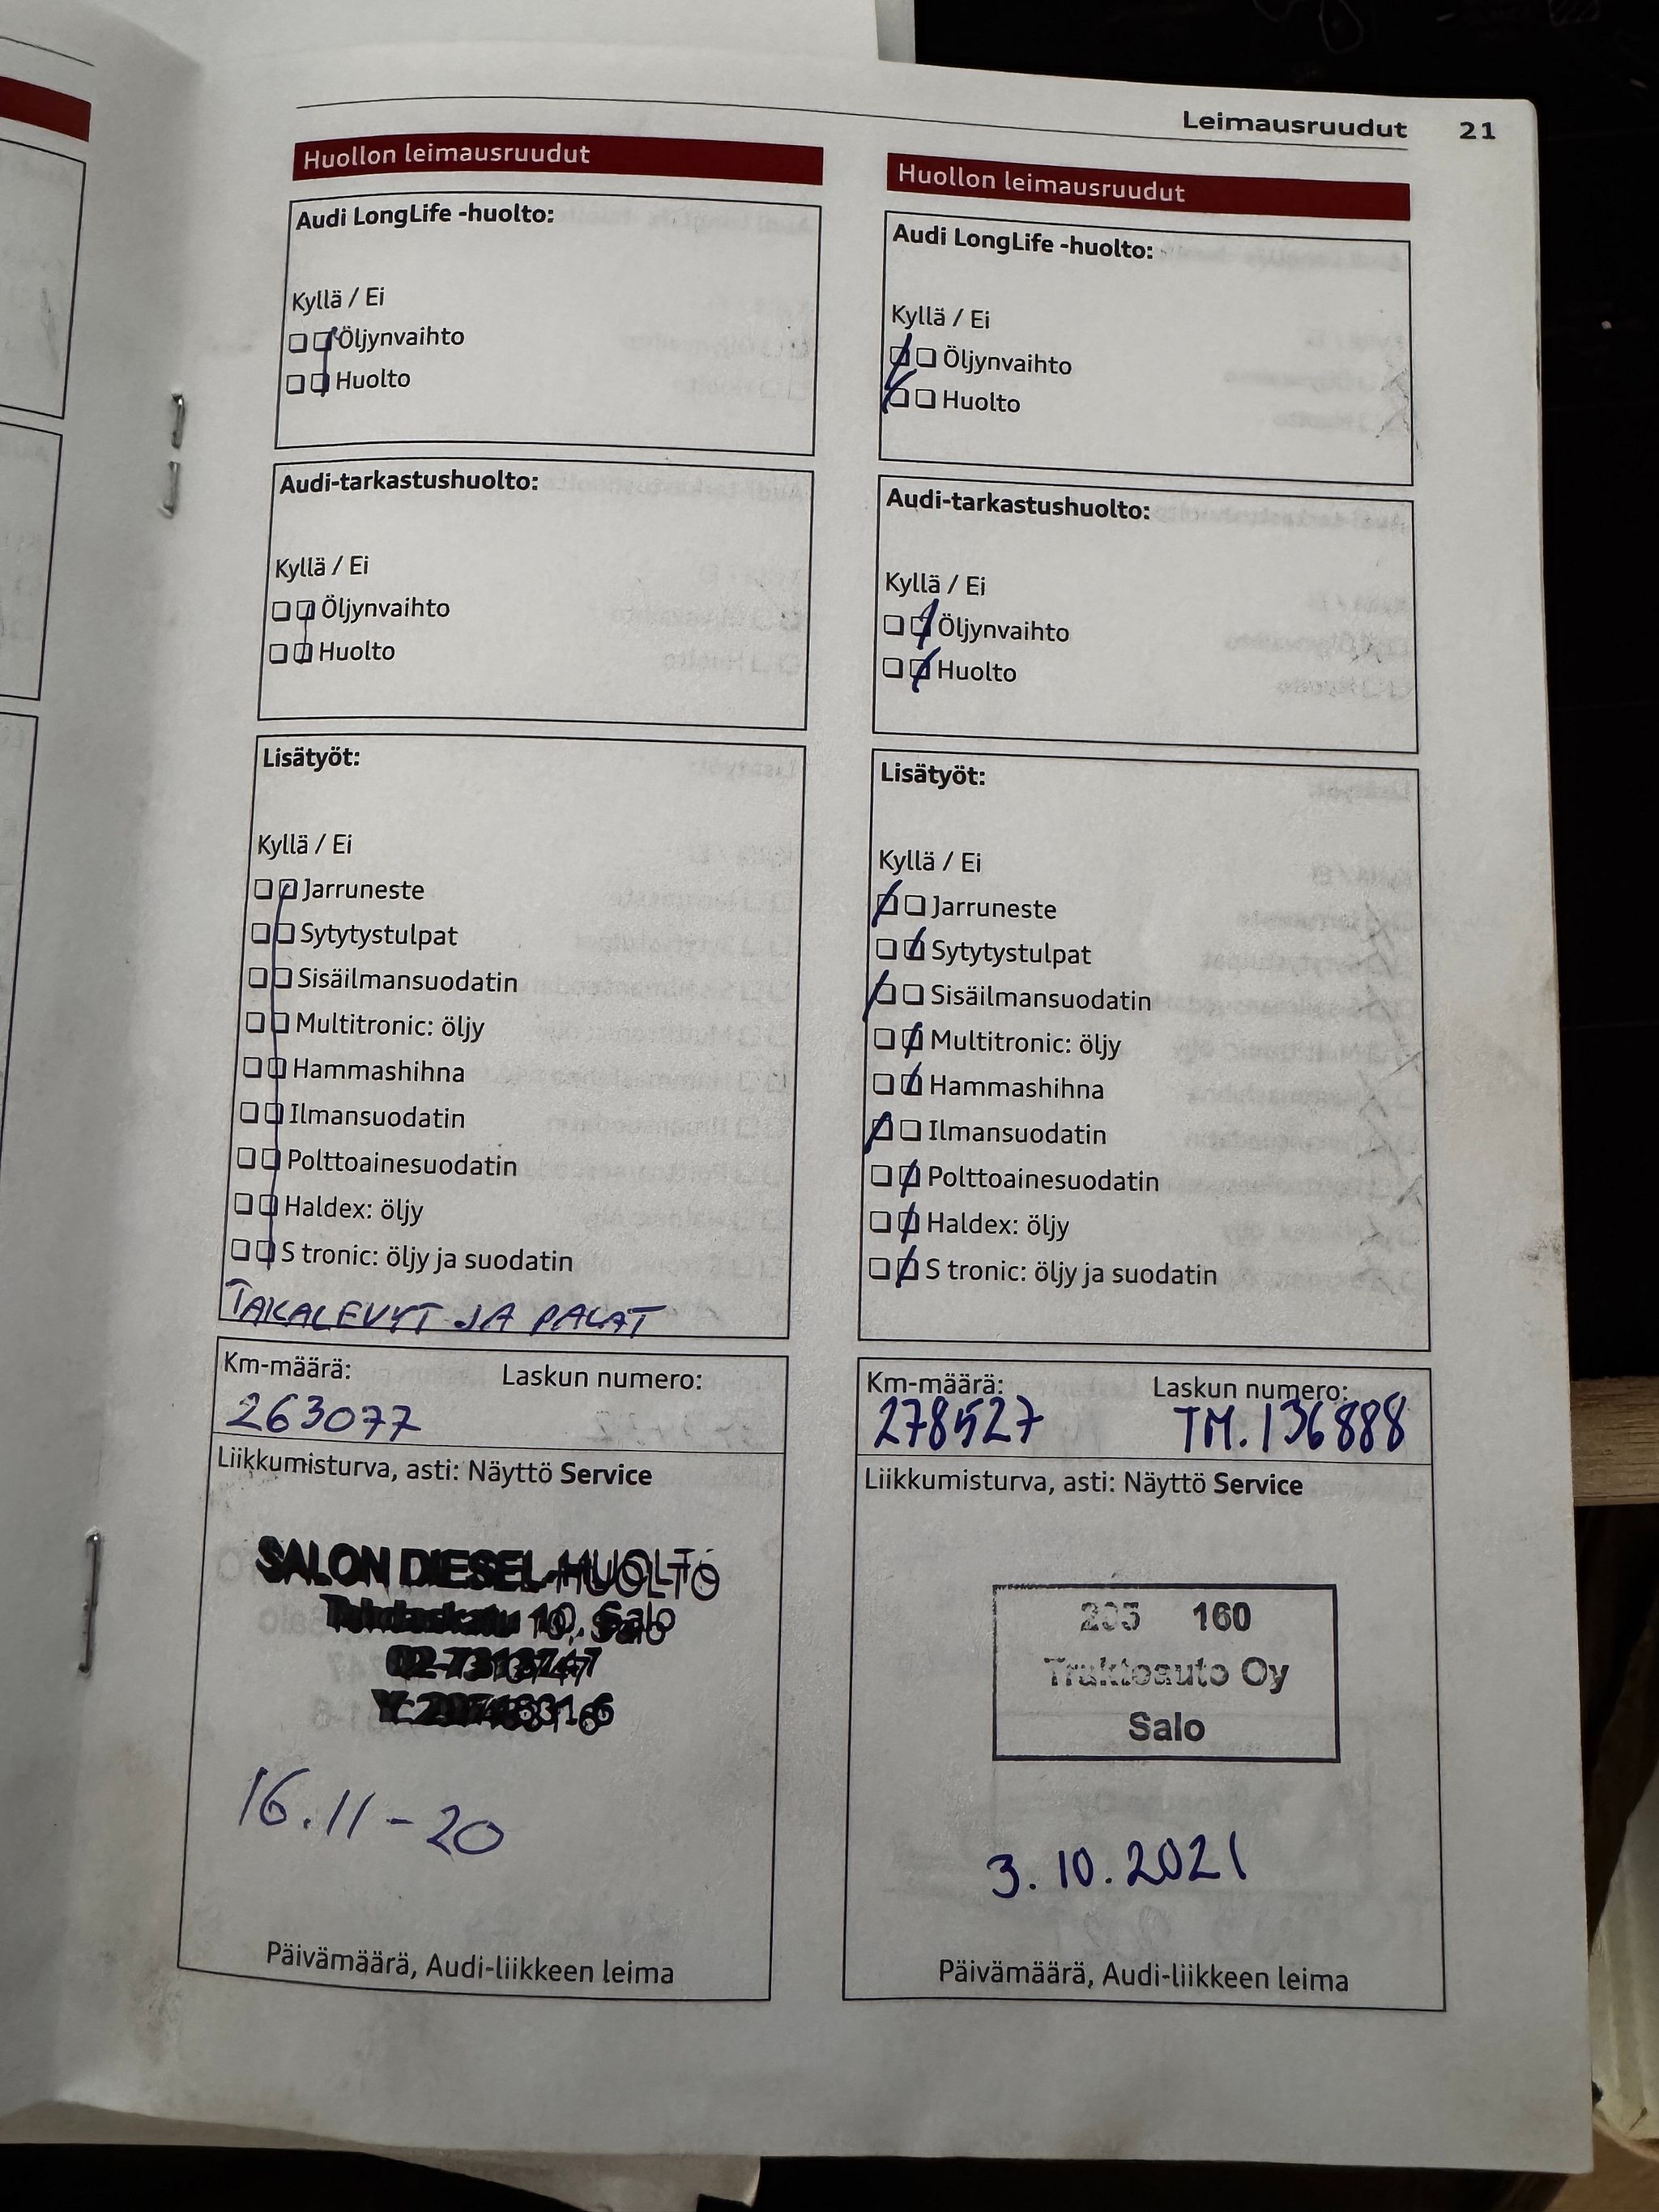 Leimausruudut 21
Huollon leimausruudut
Audi LongLife -huolto:
Kyllä / Ei
Öljynvaihto
Huolto
Audi-tarkastushuolto:
Kyllä / Ei
Öljynvaihto
Huolto
Lisätyöt:
Kyllä / Ei
Jarruneste
Sytytystulpat
Sisäilmansuodatin
Multitronic: öljy
Hammashihna
Ilmansuodatin
Polttoainesuodatin
Haldex: öljy
S tronic: öljy ja suodatin
TAKALEVYT JA PALAT
Km-määrä: Laskun numero:
263077
Liikkumisturva, asti: Näyttö Service
SALON DIESEL-HUOLTO
Tehdaskatu 10, Salo
02-7313747
16.11-20
Päivämäärä, Audi-liikkeen leima
Huollon leimausruudut
Audi LongLife -huolto:
Kyllä / Ei
Öljynvaihto
Huolto
Audi-tarkastushuolto:
Kyllä / Ei
Öljynvaihto
Huolto
Lisätyöt:
Kyllä / Ei
Jarruneste
Sytytystulpat
Sisäilmansuodatin
Multitronic: öljy
Hammashihna
Ilmansuodatin
Polttoainesuodatin
Haldex: öljy
S tronic: öljy ja suodatin
Km-määrä: Laskun numero:
278527 TM.136888
Liikkumisturva, asti: Näyttö Service
205 160
Traktoauto Oy
Salo
3.10.2021
Päivämäärä, Audi-liikkeen leima